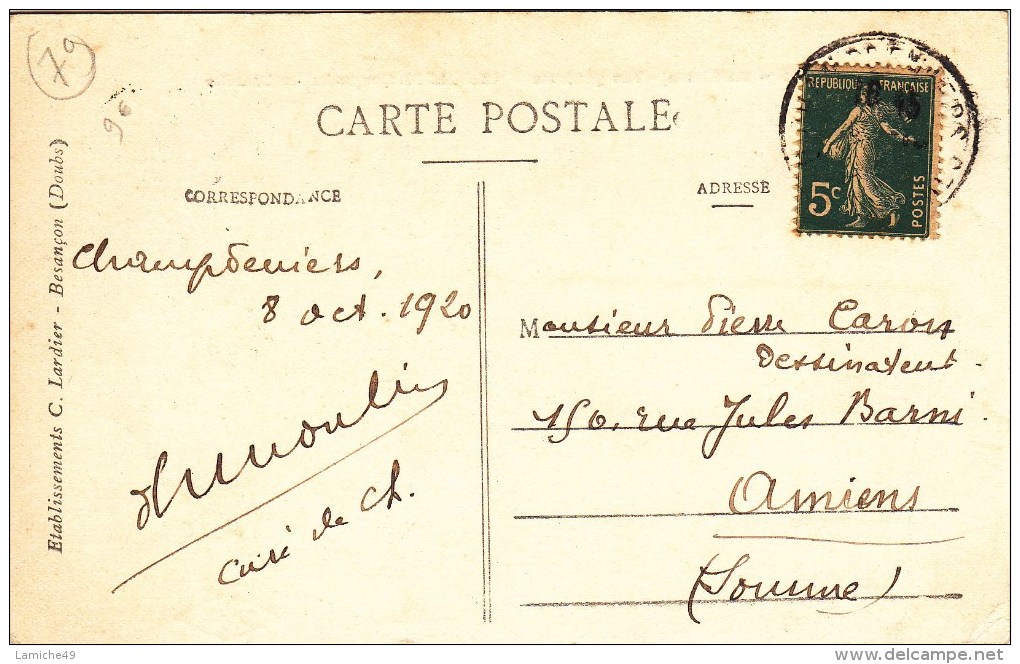 79
96
CARTE POSTALE
CORRESPONDANCE
ADRESSE
REPUBLIQUE FRANÇAISE
5c
POSTES
Etablissements C. Lardier - Besançon (Doubs)
Champdeniers,
8 oct. 1920
Dumoulin
curé de Ch.
Monsieur Pierre Caron
Dessinateur
150, rue Jules Barni.
Amiens
(Somme)
Lamiche49
www.delcampe.net